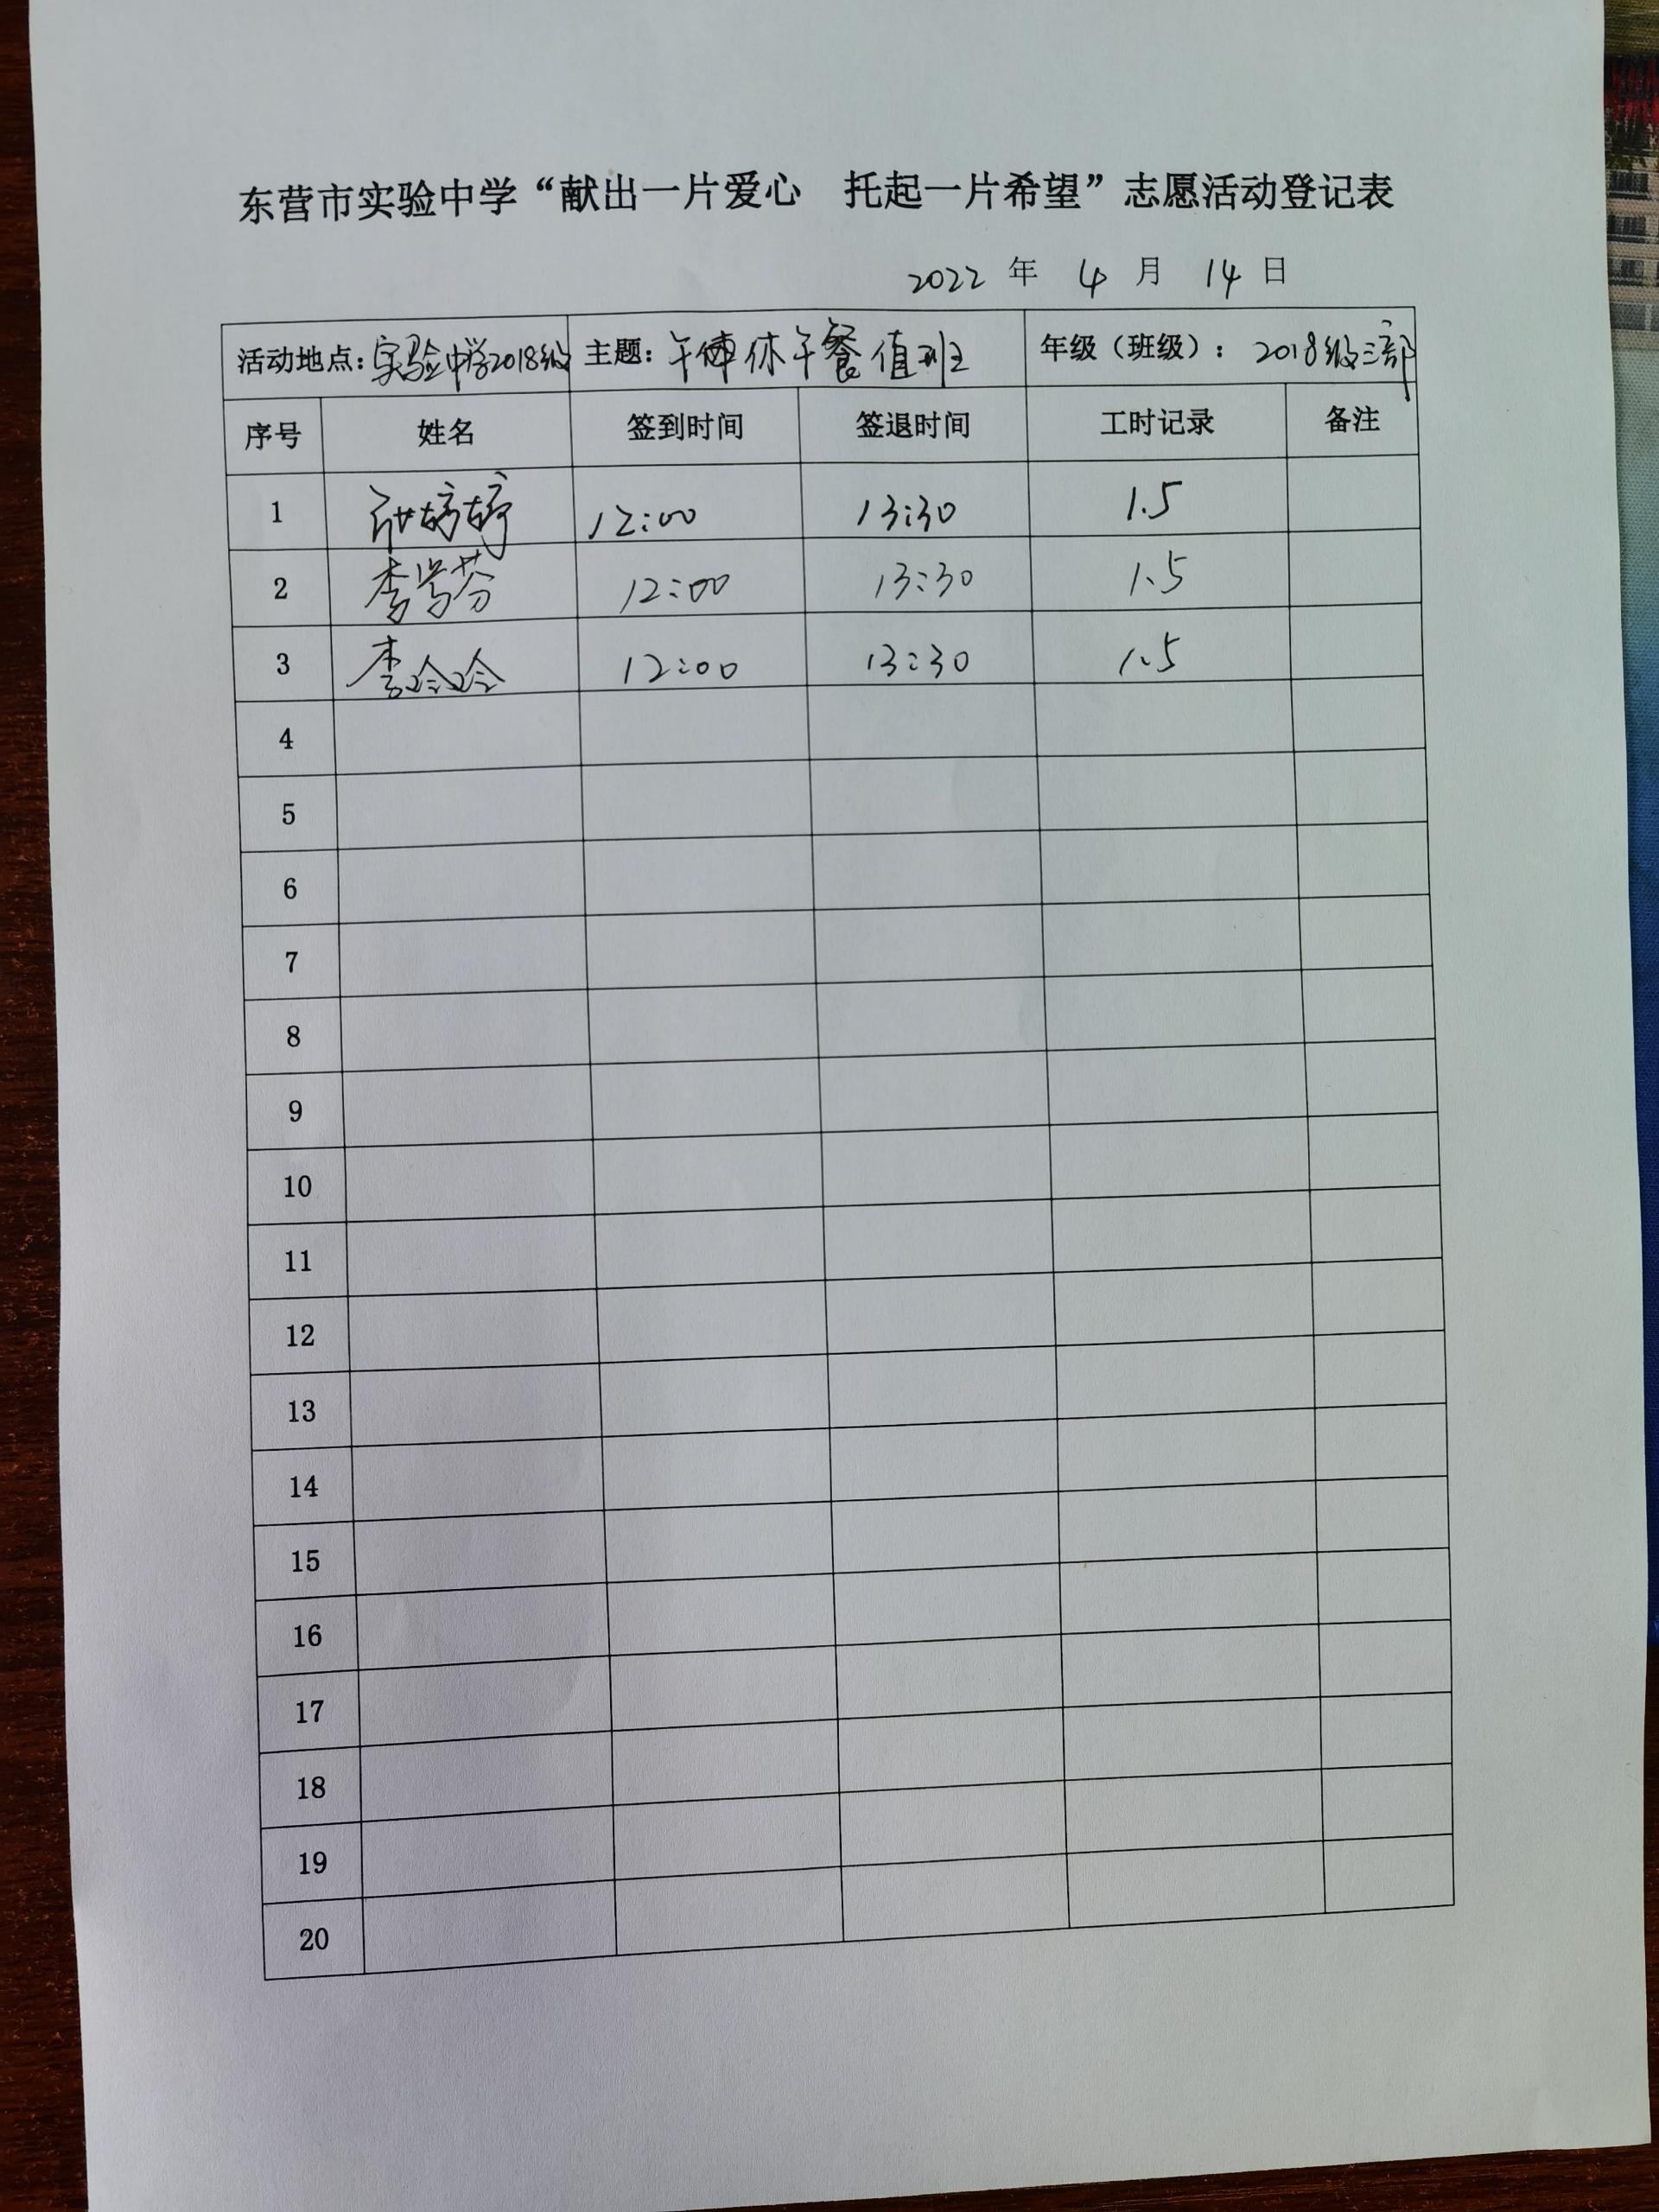 东营市实验中学“献出一片爱心 托起一片希望”志愿活动登记表
2022 年 4 月 14 日
活动地点：实验中学2018级 主题：午休午餐值班 年级（班级）：2018级三部
序号 姓名 签到时间 签退时间 工时记录 备注
1 婷婷 12:00 13:30 1.5
2 李学芬 12:00 13:30 1.5
3 李玲玲 12:00 13:30 1.5
4
5
6
7
8
9
10
11
12
13
14
15
16
17
18
19
20